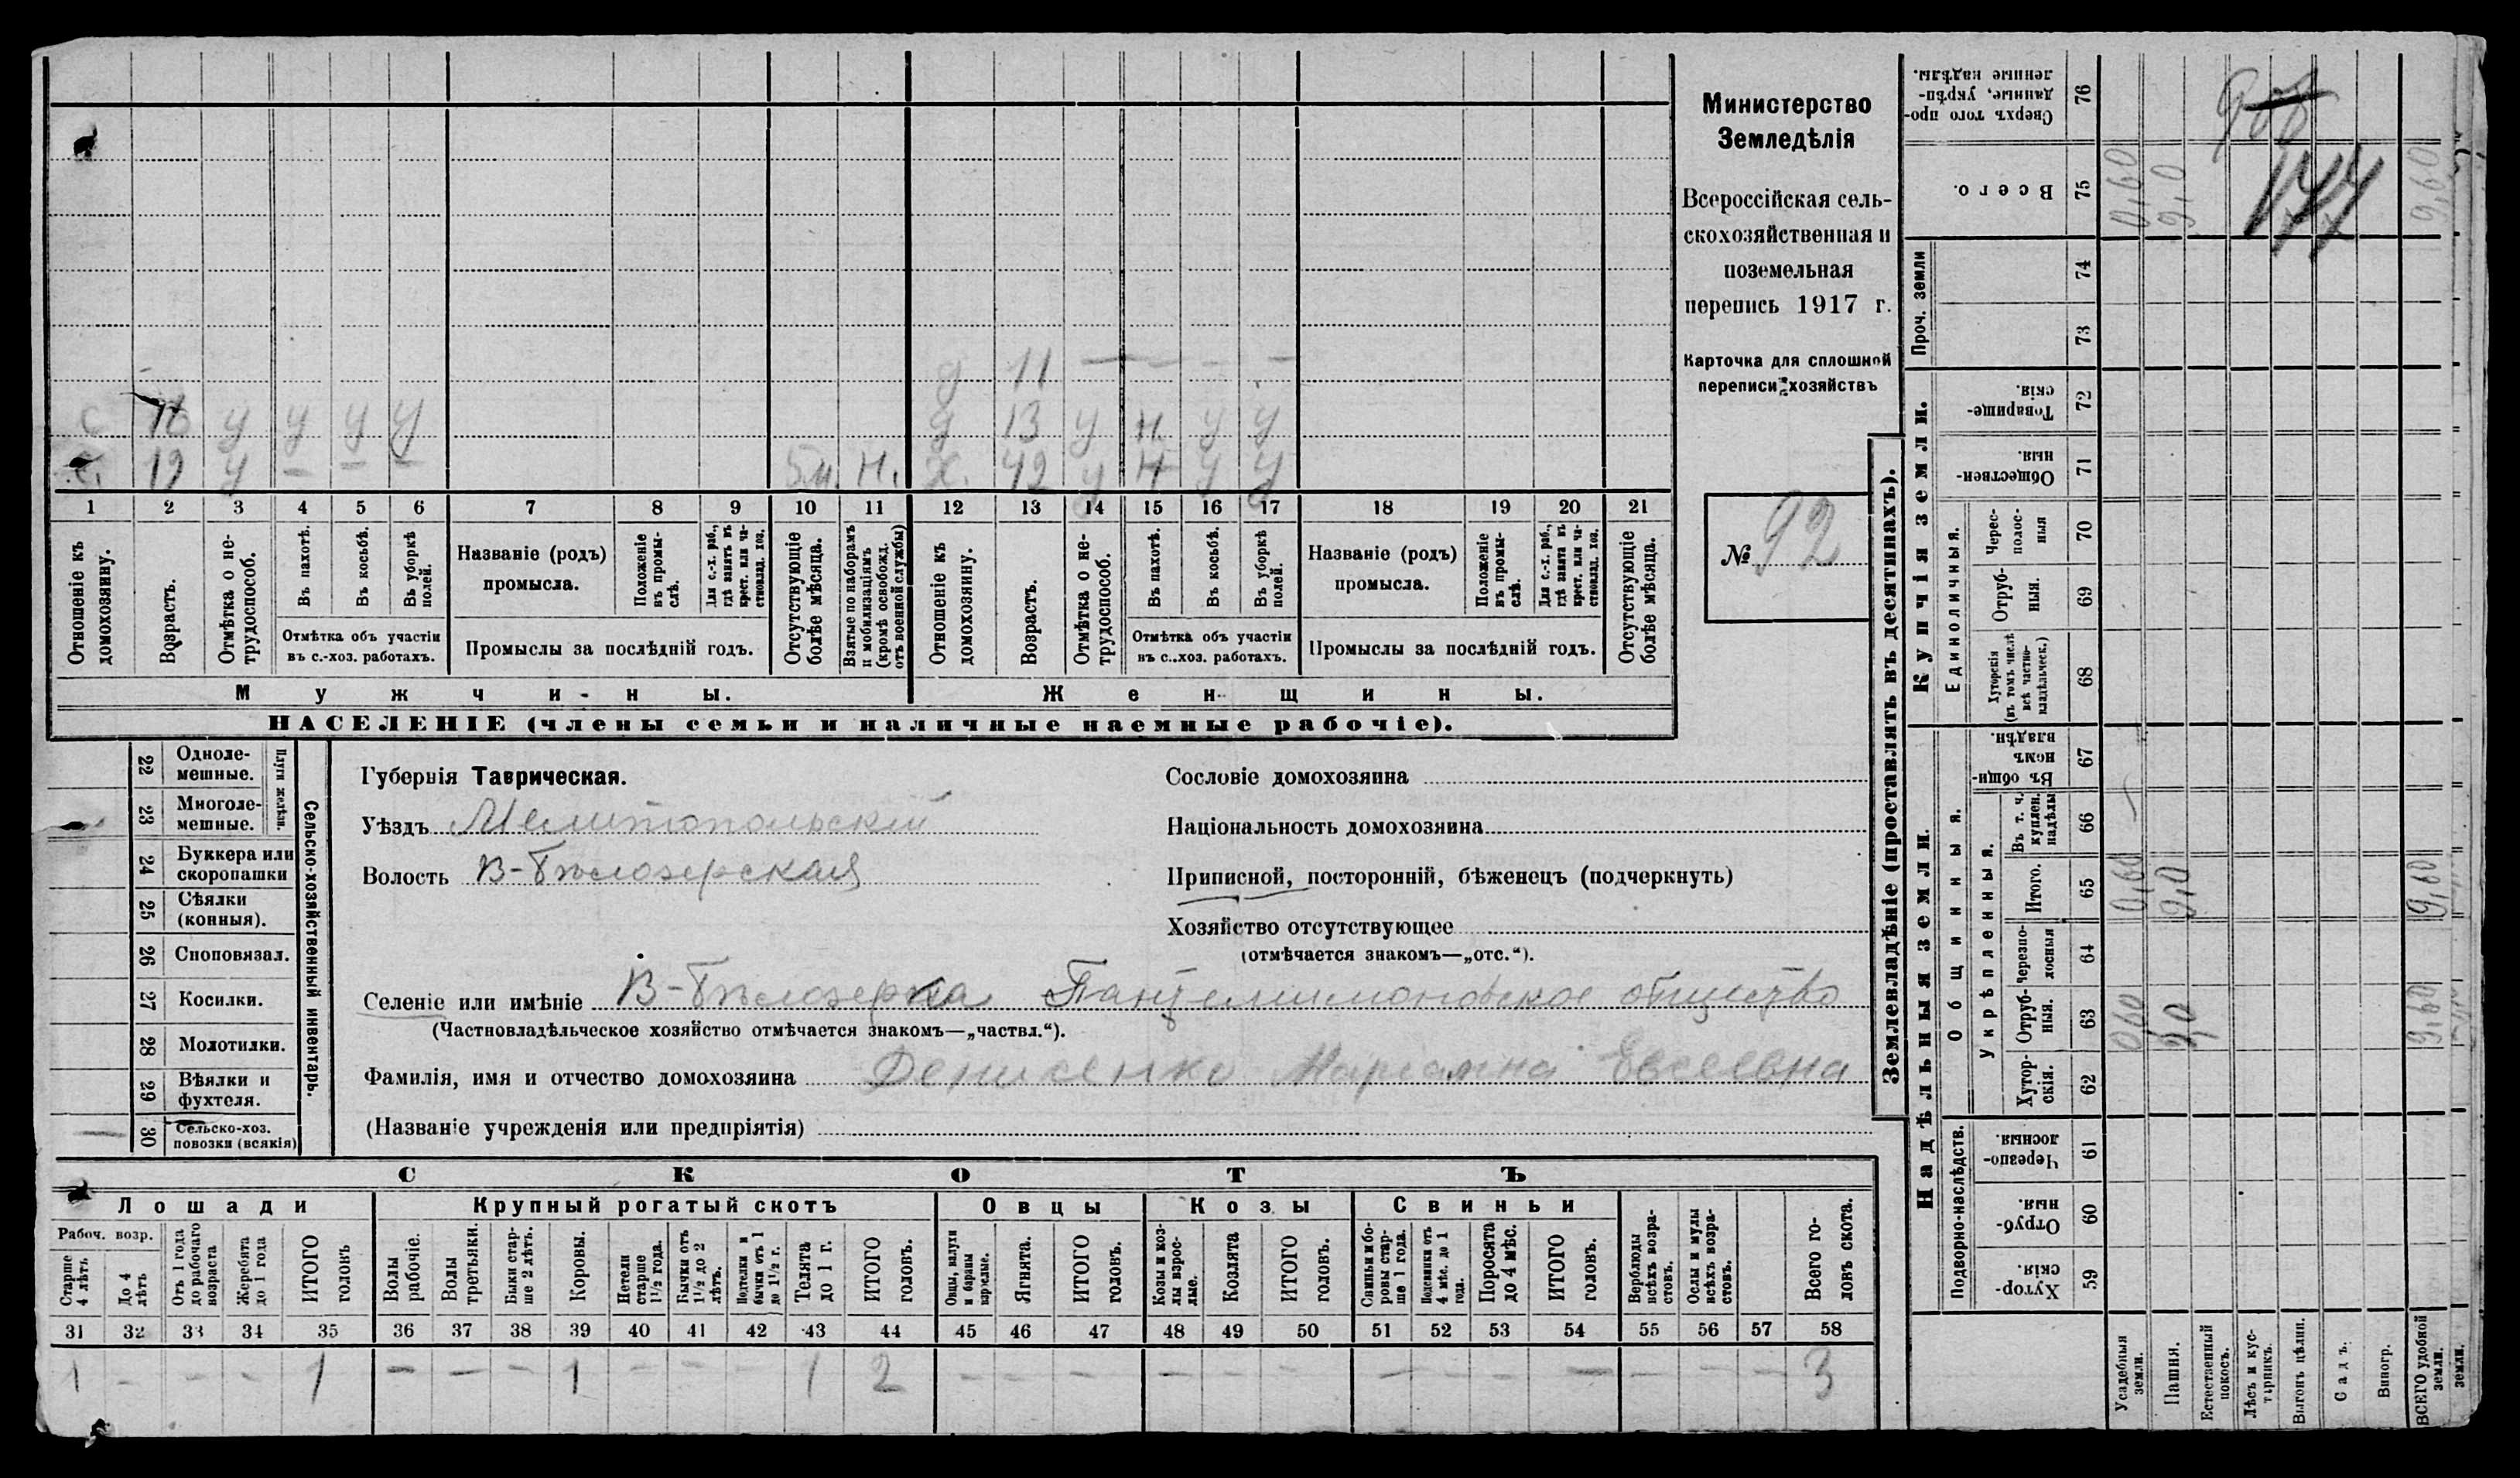 Министерство
Земледѣлія
Всероссійская сель-
скохозяйственная и
поземельная
перепись 1917 г.
Карточка для сплошной
переписи хозяйствъ
№ 92
д 11 — — — —
с 16 у у у у
д 13 у н у у
с. 19 у — — —
5 м. н.
х. 42 у н у у
1 2 3 4 5 6 7 8 9 10 11 12 13 14 15 16 17 18 19 20 21
Отношеніе къ домохозяину.
Возрастъ.
Отмѣтка о не-трудоспособ.
Въ пахотѣ.
Въ косьбѣ.
Въ уборкѣ полей.
Отмѣтка объ участіи
въ с.-хоз. работахъ.
Названіе (родъ)
промысла.
Положеніе въ промы-слѣ.
Для с.-х. раб., гдѣ занятъ въ крест. или ча-стновлад. хоз.
Промыслы за послѣдній годъ.
Отсутствующіе болѣе мѣсяца.
Взятые по наборамъ и мобилизаціямъ (кромѣ освобожд. отъ военной службы)
Отношеніе къ домохозяину.
Возрастъ.
Отмѣтка о не-трудоспособ.
Въ пахотѣ.
Въ косьбѣ.
Въ уборкѣ полей.
Отмѣтка объ участіи
въ с..хоз. работахъ.
Названіе (родъ)
промысла.
Положеніе въ промы-слѣ.
Для с.-х. раб., гдѣ занята въ крест. или ча-стновлад. хоз.
Промыслы за послѣдній годъ.
Отсутствующіе болѣе мѣсяца.
Мужчи-ны.
Женщины.
НАСЕЛЕНІЕ (члены семьи и наличные наемные рабочіе).
22 Одноле-мешные.
23 Многоле-мешные.
Плуги желѣзн.
24 Буккера или скоропашки
25 Сѣялки (конныя).
26 Сноповязал.
27 Косилки.
28 Молотилки.
29 Вѣялки и фухтеля.
30 Сельско-хоз. повозки (всякія)
—
Сельско-хозяйственный инвентарь.
Губернія Таврическая.
Уѣздъ Мелитопольскій
Волость В-Бѣлозерская
Сословіе домохозяина
Національность домохозяина
Приписной, посторонній, бѣженецъ (подчеркнуть)
Хозяйство отсутствующее
(отмѣчается знакомъ—„отс.“).
Селеніе или имѣніе В-Бѣлозерка Панцелимоновское общество
(Частновладѣльческое хозяйство отмѣчается знакомъ—„частвл.“).
Фамилія, имя и отчество домохозяина Денисенко Маріамна Евсеевна
(Названіе учрежденія или предпріятія)
СКОТЪ
Лошади
Крупный рогатый скотъ
Овцы
Козы
Свиньи
Рабоч. возр.
Старше 4 лѣтъ
До 4 лѣтъ
Отъ 1 года до рабочаго возраста
Жеребята до 1 года
ИТОГО головъ
Волы рабочіе.
Волы третьяки.
Быки стар-ше 2 лѣтъ.
Коровы.
Нетели старше 1½ года.
Бычки отъ 1½ до 2 лѣтъ.
Нетелки и бычки отъ 1 до 1½ г.
Телята до 1 г.
ИТОГО головъ.
Овцы, валухи и бараны взрослые.
Ягнята.
ИТОГО головъ.
Козы и коз-лы взрос-лые.
Козлята
ИТОГО головъ.
Свиньи и бо-ровы стар-ше 1 года.
Подсвинки отъ 4 мѣс. до 1 года.
Поросята до 4 мѣс.
ИТОГО головъ.
Верблюды всѣхъ возра-стовъ.
Ослы и мулы всѣхъ возра-стовъ.
Всего го-ловъ скота.
31 32 33 34 35 36 37 38 39 40 41 42 43 44 45 46 47 48 49 50 51 52 53 54 55 56 57 58
1 - - - 1 — — — 1 — — — 1 2 — — — — — — — — — — — — — 3
Землевладѣніе (проставлять въ десятинахъ).
Надѣльныя земли.
Купчія земли.
Проч. земли
Сверхъ того про-данные, укрѣп-ленные надѣлы. 76
Всего. 75
74
73
Товарище-скія. 72
Обществен-ныя. 71
Единоличныя.
Черес-полос-ныя 70
Отруб-ныя. 69
Хуторскія (въ томъ числѣ всѣ частно-владѣльческ.) 68
Въ общин-номъ владѣн. 67
Общинныя.
Укрѣпленныя.
Въ т. ч. куплен. надѣлы 66
Итого. 65
Черезпо-лосныя 64
Отруб-ныя. 63
Хутор-скія. 62
Подворно-наслѣдств.
Черезпо-лосныя. 61
Отруб-ныя. 60
Хутор-скія. 59
Усадебныя земли.
Пашня.
Естественный покосъ.
Лѣсъ и кус-тарникъ.
Выгонъ цѣлин.
Садъ.
Виногр.
ВСЕГО удобной земли.
земли.
0,60 9,0 9,60
0,60 9,0 9,60
0,60 9,0 9,60
177